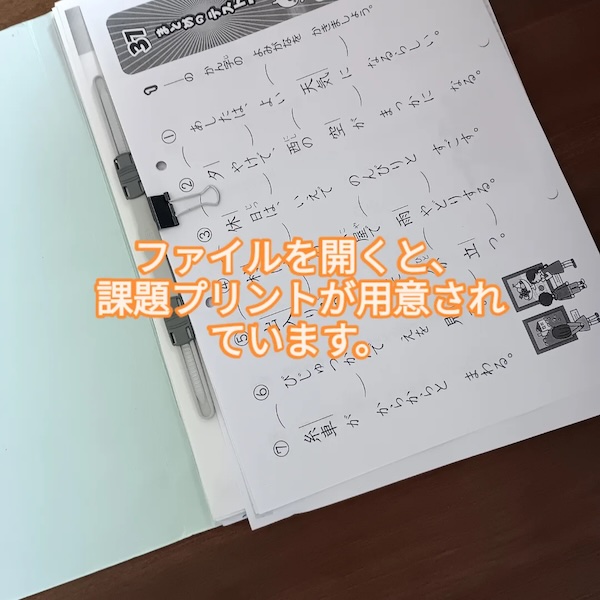 ファイルを開くと、
課題プリントが用意され
ています。
37 まとめの テスト
1 ――の かん字の よみがなを かきましょう。
① あしたは、よい 天気に なるらしい。
② 夕やけで、西の 空が まっかに なる。
③ 休日は、いえで のんびりと すごす。
雨やどりする。
立つ。
⑥ びじゅつかんで えを 見
⑦ 糸車が からからと まわる。